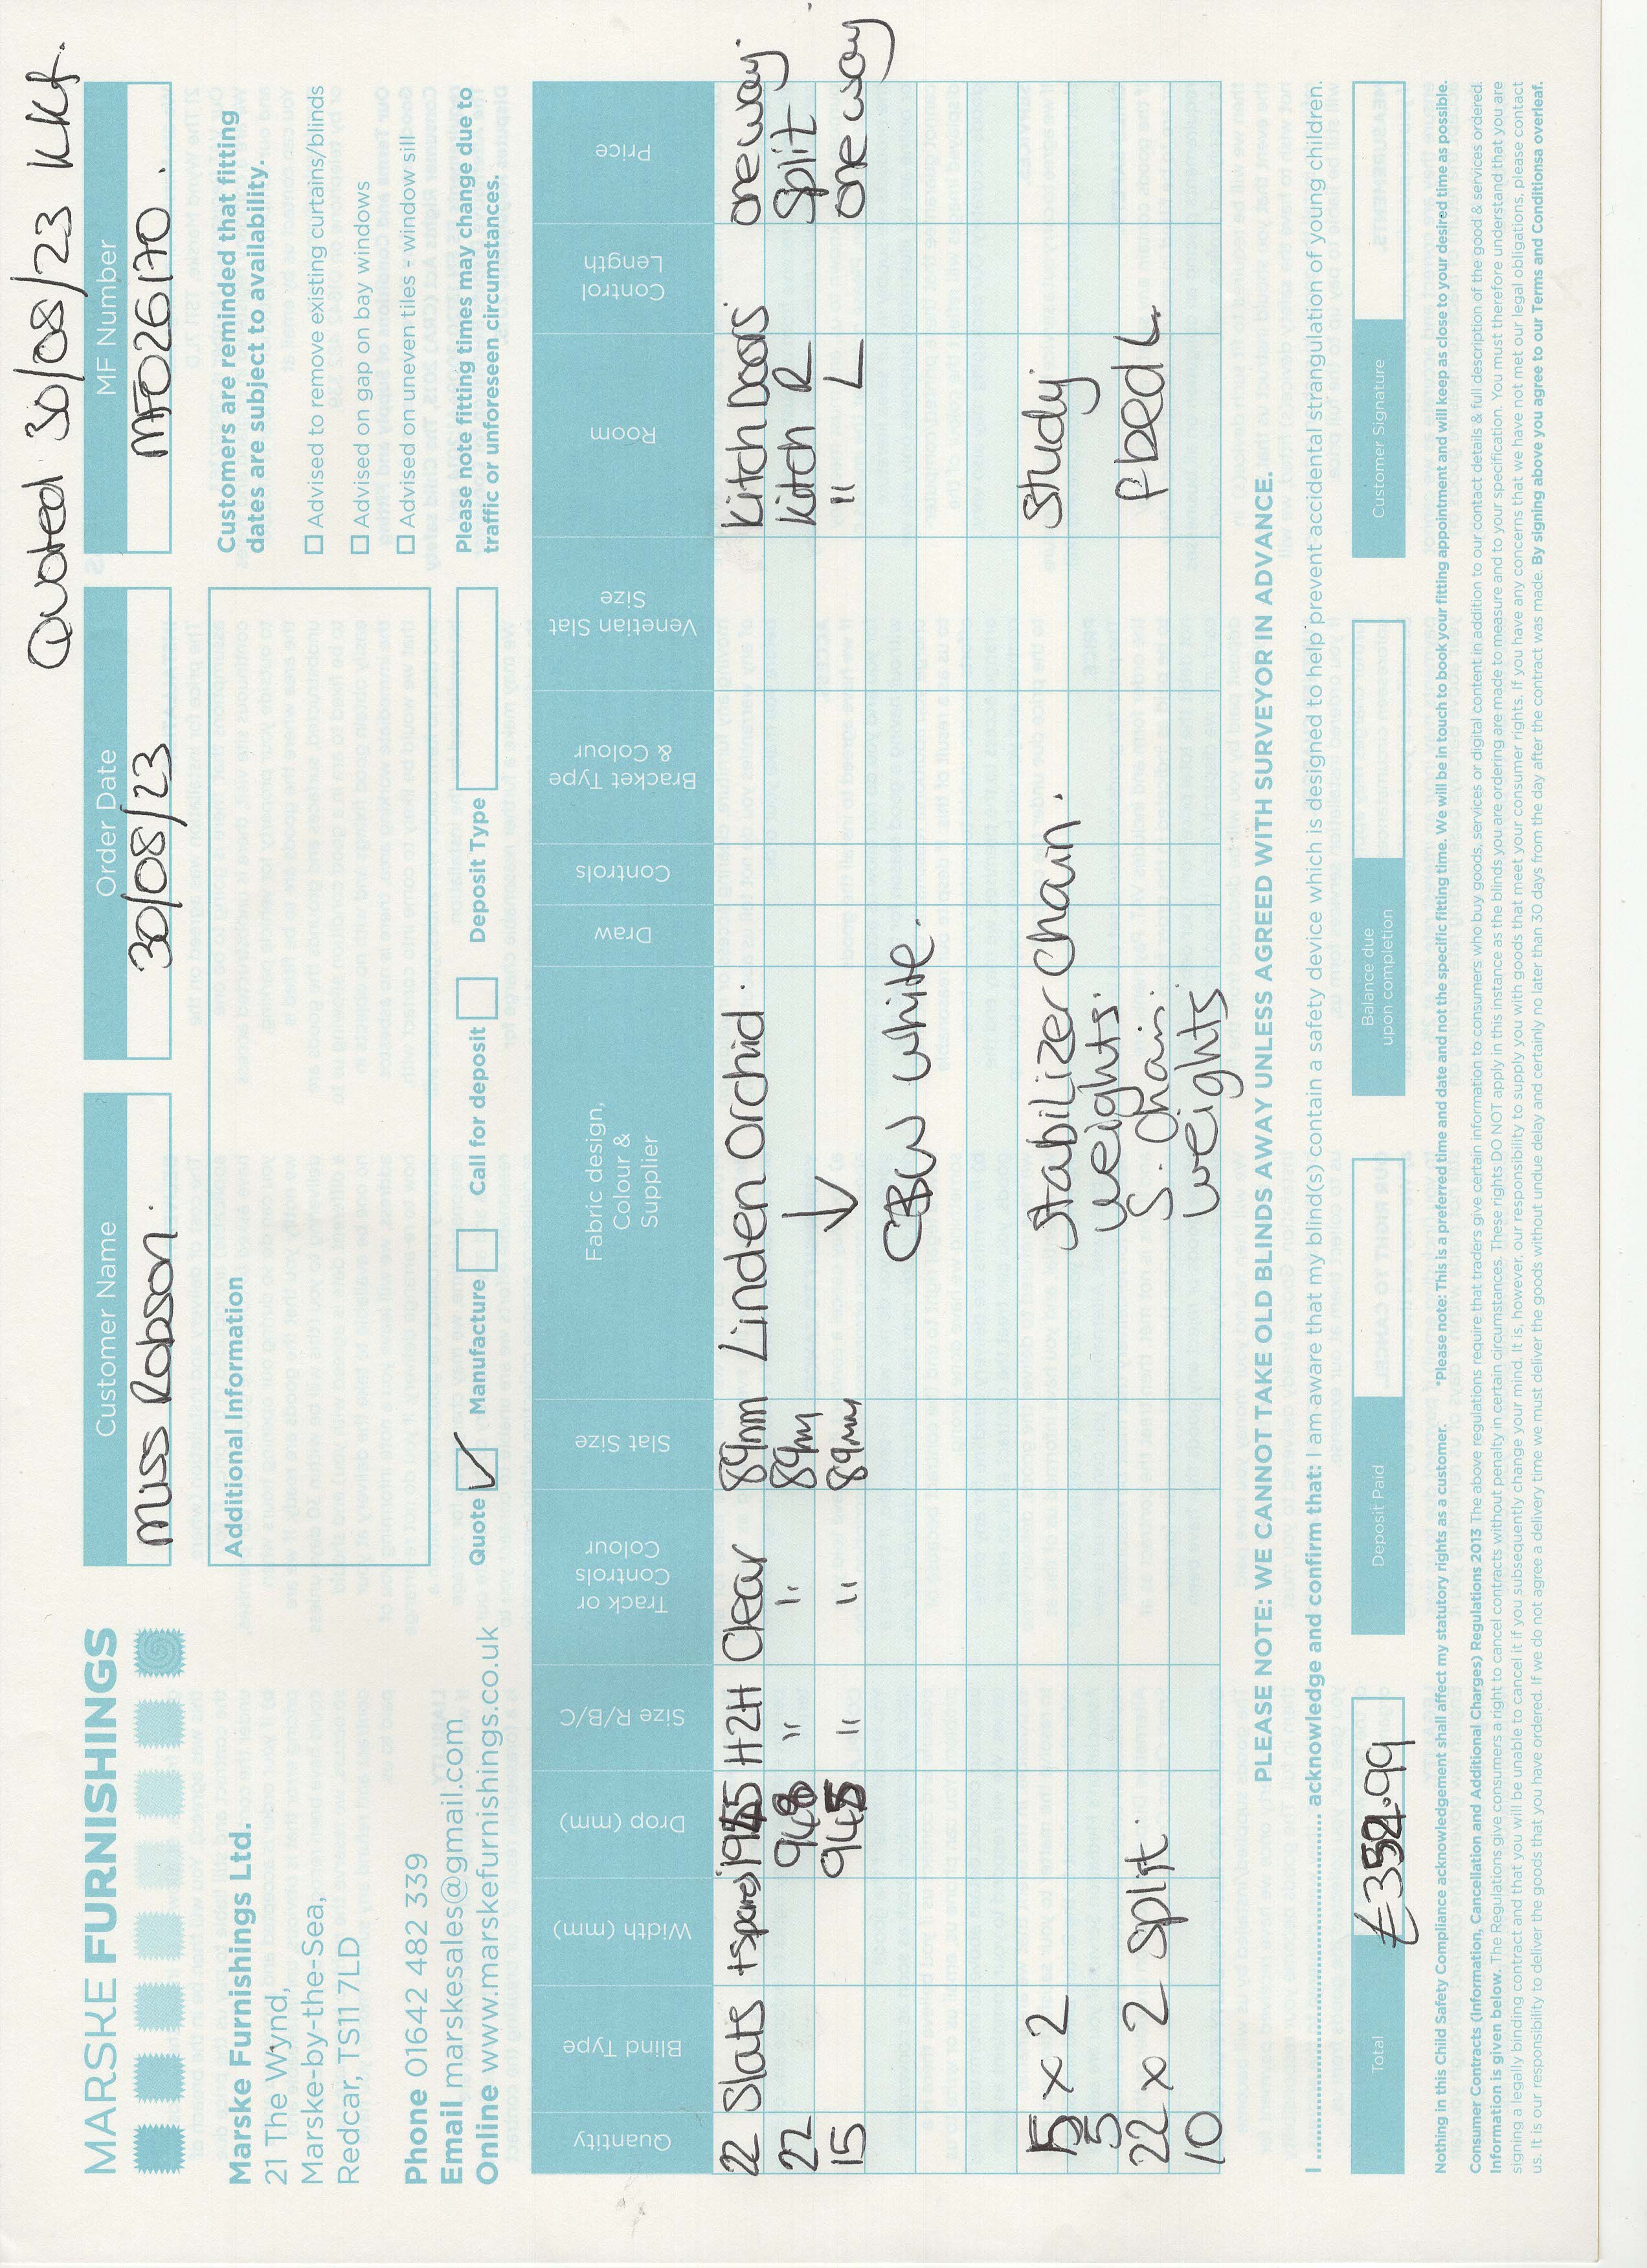 Quoted 30/08/23 KKf.
MARSKE FURNISHINGS
Marske Furnishings Ltd.
21 The Wynd,
Marske-by-the-Sea,
Redcar, TS11 7LD
Phone 01642 482 339
Email marskesales@gmail.com
Online www.marskefurnishings.co.uk
Customer Name
Miss Robson.
Order Date
30/08/23
MF Number
MF026170.
Additional Information
Customers are reminded that fitting
dates are subject to availability.
Advised to remove existing curtains/blinds
Advised on gap on bay windows
Advised on uneven tiles - window sill
Please note fitting times may change due to
traffic or unforeseen circumstances.
Quote ✓ Manufacture Call for deposit Deposit Type
Quantity Blind Type Width (mm) Drop (mm) Size R/B/C Track or Controls Colour Slat Size Fabric design, Colour & Supplier Draw Controls Bracket Type & Colour Venetian Slat Size Room Control Length Price
22 Slats + spares 1955 H2H Clear 89mm Linden Orchid. Kitch Doors one way.
22 948 " " 89m Kitch R Split
15 945 " " 89mm ↓ " L one way
CBW White.
15 x 2 Stabilizer Chain. Study
5 weights.
22 x 2 Split. S. Chain. F bed L
10 weights
PLEASE NOTE: WE CANNOT TAKE OLD BLINDS AWAY UNLESS AGREED WITH SURVEYOR IN ADVANCE.
I .......... acknowledge and confirm that: I am aware that my blind(s) contain a safety device which is designed to help prevent accidental strangulation of young children.
Total
Deposit Paid
Balance due
upon completion
Customer Signature
Nothing in this Child Safety Compliance acknowledgement shall affect my statutory rights as a customer. *Please note: This is a preferred time and date and not the specific fitting time. We will be in touch to book your fitting appointment and will keep as close to your desired time as possible.
Consumer Contracts (Information, Cancellation and Additional Charges) Regulations 2013 The above regulations require that traders give certain information to consumers who buy goods, services or digital content in addition to our contact details & full description of the good & services ordered.
Information is given below. The Regulations give consumers a right to cancel contracts without penalty in certain circumstances. These rights DO NOT apply in this instance as the blinds you are ordering are made to measure and to your specification. You must therefore understand that you are
signing a legally binding contract and that you will be unable to cancel it if you subsequently change your mind. It is, however, our responsibility to supply you with goods that meet your consumer rights. If you have any concerns that we have not met our legal obligations, please contact
us. It is our responsibility to deliver the goods that you have ordered. If we do not agree a delivery time we must deliver the goods without undue delay and certainly no later than 30 days from the day after the contract was made. By signing above you agree to our Terms and Conditionsa overleaf.